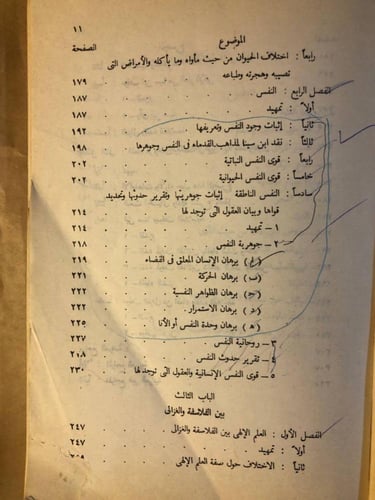 ١١
الموضوع
الصفحة
رابعاً : اختلاف الحيوان من حيث مأواه وما يأكله والأمراض التى
تصيبه وهجرته وطباعه . . . . ١٧٩
الفصل الرابع : النفس . . . . ١٨٧
أولاً : تمهيد . . . . ١٨٧
ثانياً : إثبات وجود النفس وتعريفها . . . . ١٩٢
ثالثاً : نقد ابن سينا لمذاهب القدماء فى النفس وجوهرها . ١٩٨
رابعاً : قوى النفس النباتية . . . . ٢٠٢
خامساً : قوى النفس الحيوانية . . . . ٢٠٨
سادساً : النفس الناطقة إثبات جوهريتها وتقرير حدوثها وتحديد
قواها وبيان العقول التى توجد لها . . . . ٢١٤
١ – تمهيد . . . . ٢١٤
٢ – جوهرية النفس . . . . ٢١٨
(ا) برهان الإنسان المعلق فى الفضاء . . . ٢١٩
(ب) برهان الحركة . . . . ٢٢١
(ج) برهان الظواهر النفسية . . . . ٢٢٢
(د) برهان الاستمرار . . . . ٢٢٢
(ه) برهان وحدة النفس أو الأنا . . . . ٢٢٥
٣ – روحانية النفس . . . . ٢٢٧
٤ – تقرير حدوث النفس . . . .
٥ – قوى النفس الإنسانية والعقول التى توجد لها . ٢٣٠
الباب الثالث
بين الفلاسفة والغزالى
الفصل الأول : العلم الإلهى بين الفلاسفة والغزالى . . . ٢٤٧
أولاً : تمهيد . . . . ٢٤٧
ثانياً : الاختلاف حول صفة العلم الإلهى . . .